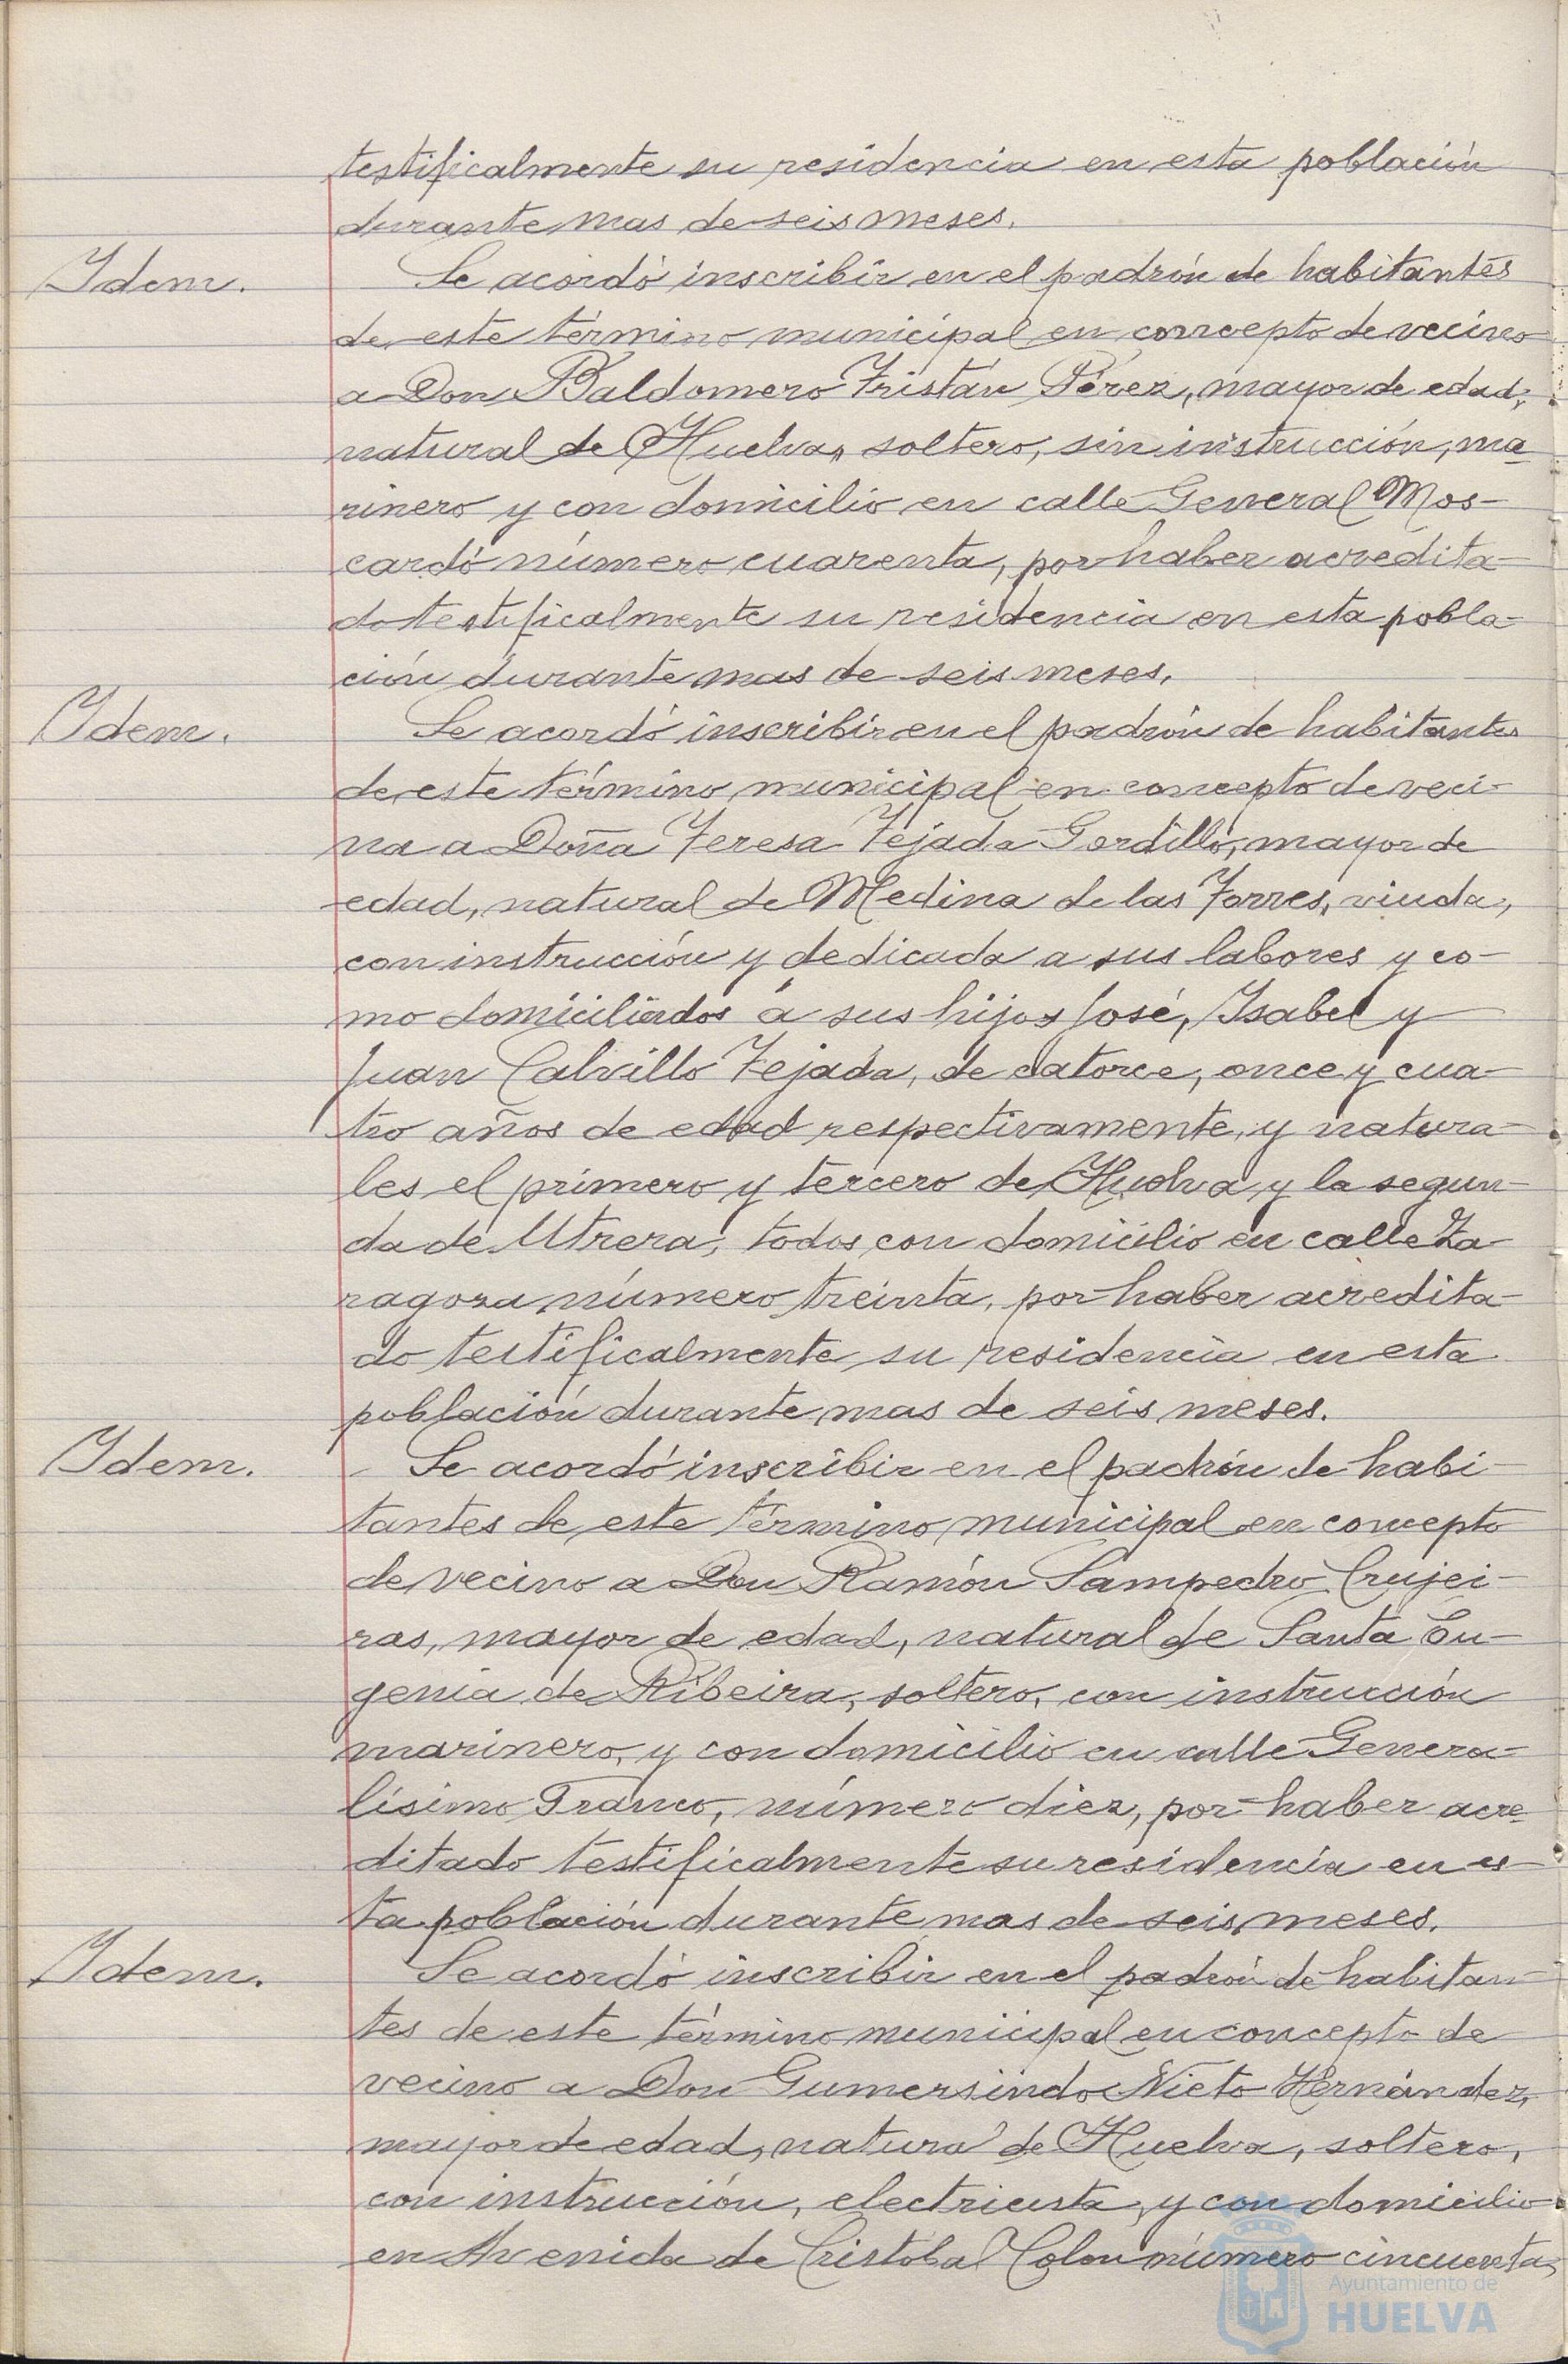 testificalmente su residencia en esta población
durante mas de seis meses.
Idem.
Se acordó inscribir en el padrón de habitantes
de este término municipal en concepto de vecino
a Don Baldomero Tristán Pérez, mayor de edad,
natural de Huelva, soltero, sin instrucción, ma-
rinero y con domicilio en calle General Mos-
cardó número cuarenta, por haber acredita-
do testificalmente su residencia en esta pobla-
ción durante mas de seis meses.
Idem.
Se acordó inscribir en el padrón de habitantes
de este término municipal en concepto de veci-
na a Doña Teresa Tejada Gordillo, mayor de
edad, natural de Medina de las Torres, viuda,
con instrucción y dedicada a sus labores y co-
mo domiciliados a sus hijos José, Isabel y
Juan Calvillo Tejada, de catorce, once y cua-
tro años de edad respectivamente, y natura-
les el primero y tercero de Huelva y la segun-
da de Utrera, todos con domicilio en calle Za-
ragoza número treinta, por haber acredita-
do testificalmente su residencia en esta
población durante mas de seis meses.
Idem.
Se acordó inscribir en el padrón de habi-
tantes de este término municipal en concepto
de vecino a Don Ramón Sampedro Crujei-
ras, mayor de edad, natural de Santa Eu-
genia de Ribeira, soltero, con instrucción
marinero, y con domicilio en calle Genera-
lísimo Franco, número diez, por haber acre-
ditado testificalmente su residencia en es-
ta población durante mas de seis meses.
Idem.
Se acordó inscribir en el padrón de habitan-
tes de este término municipal en concepto de
vecino a Don Gumersindo Nieto Hernández,
mayor de edad, natural de Huelva, soltero,
con instrucción, electricista, y con domicilio
en Avenida de Cristóbal Colon número cincuenta,
Ayuntamiento de
HUELVA